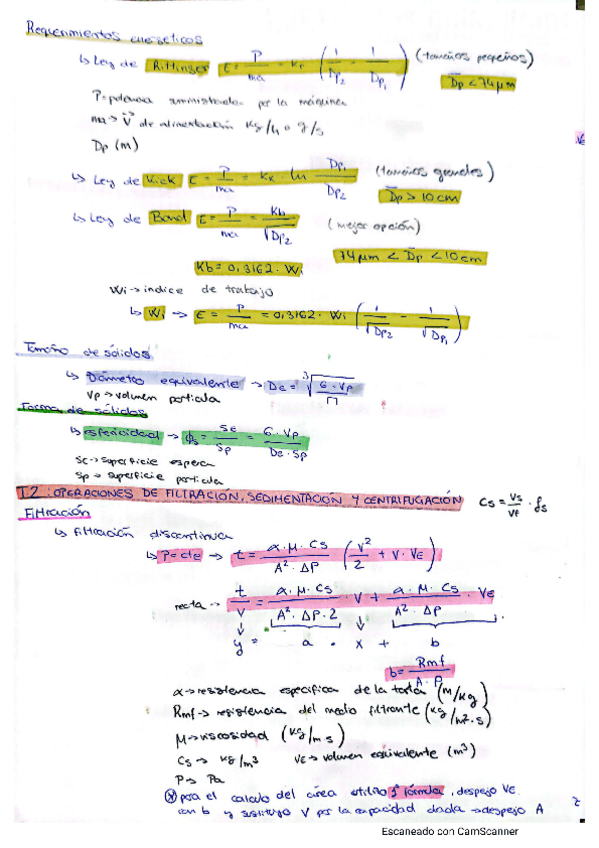 Requerimientos energéticos
↳ Ley de Rittinger E = P/ma = Kr (1/Dp2 - 1/Dp1) (tamaños pequeños)
Dp < 74 μm
P = potencia suministrada por la máquina
ma → V de alimentación Kg/h o g/s
Dp (m)
↳ Ley de Kick E = P/ma = Kk · ln Dp1/Dp2 (tamaños grandes)
Dp > 10 cm
↳ Ley de Bond E = P/ma = Kb/√Dp2 (mejor opción)
74 μm < Dp < 10 cm
Kb = 0,3162 · Wi
Wi → índice de trabajo
↳ Wi → E = P/ma = 0,3162 · Wi (1/√Dp2 - 1/√Dp1)
Tamaño de sólidos
↳ Diámetro equivalente → De = ∛(6 · Vp/π)
Vp → volumen partícula
Forma de sólidos
↳ esfericidad → ϕs = Se/Sp = 6 · Vp/De · Sp
Se → superficie esfera
Sp → superficie partícula
T.2: OPERACIONES DE FILTRACIÓN, SEDIMENTACIÓN Y CENTRIFUGACIÓN Cs = Vs/Vf · ρs
Filtración
↳ Filtración discontinua
↳ P = cte → t = α · μ · Cs/A² · ΔP (V²/2 + V · VE)
recta → t/V = α · μ · Cs/A² · ΔP · 2 · V + α · μ · Cs/A² · ΔP · VE
y = a · x + b
b = Rmf/A · P
α → resistencia específica de la torta (m/kg)
Rmf → resistencia del medio filtrante (kg/m2·s)
μ → viscosidad (kg/m s)
Cs → kg/m³ VE → volumen equivalente (m³)
P → Pa
* para el calculo del área utilizo 1ª fórmula, despejo VE
con b y sustituyo V por la capacidad dada → despejo A
Escaneado con CamScanner